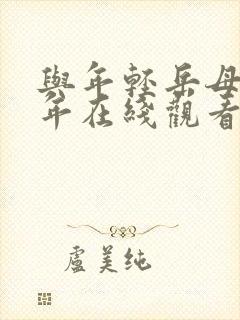 與年輕岳母
年在綫觀看
盧美纯